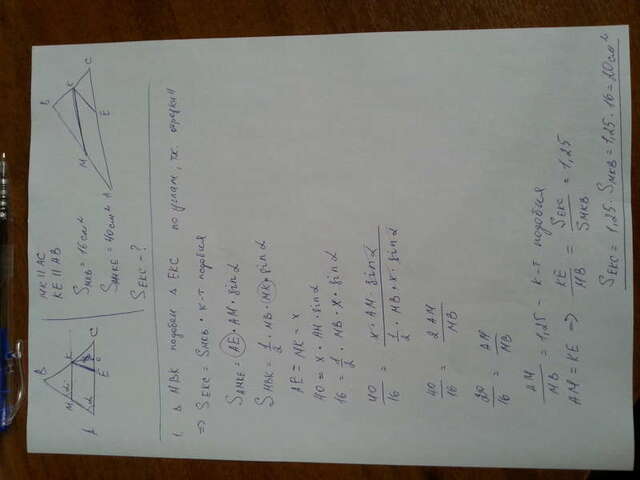 MK || AC
KE || AB
S_MKB = 16 см²
S_AMKE = 40 см²
S_EKC - ?
B
M
K
A
E
C
α
α
B
M
K
A
E
C
1. Δ MBK подобен Δ EKC по углам, т.к. отрезки ||
⇒ S_EKC = S_MKB · к-т подобия
S_AMKE = AE · AM · sin α
S_MBK = 1/2 · MB · MK · sin α
AE = MK = x
40 = x · AM · sin α
16 = 1/2 MB · x · sin α
40/16 = x · AM · sin α / 1/2 · MB · x · sin α
40/16 = 2AM/MB
20/16 = AM/MB
AM/MB = 1,25 - к-т подобия
AM = KE ⇒ KE/MB = S_EKC/S_MKB = 1,25
S_EKC = 1,25 · S_MKB = 1,25 · 16 = 20 см²